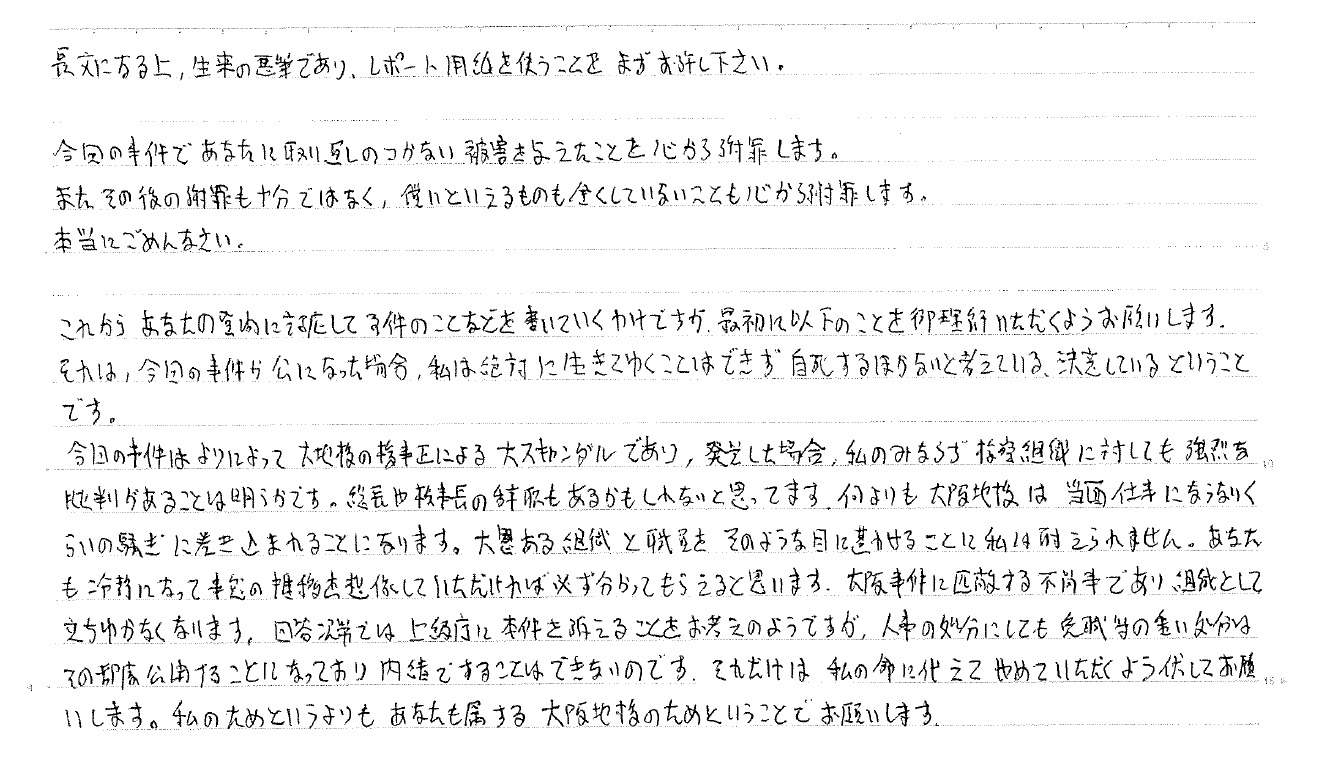 長文になる上,生来の悪筆であり、レポート用紙を使うことをまずお許し下さい。
今回の事件であなたに取り返しのつかない被害を与えたことを心から謝罪します。
またその後の謝罪も十分ではなく,償いといえるものも全くしていないことも心から謝罪します。
本当にごめんなさい。
これからあなたの意向に対応して本件のことなどを書いていくわけですが、最初に以下のことを御理解いただくようお願いします。
それは,今回の事件が公になった場合,私は絶対に生きてゆくことはできず自死するほかないと考えている、決意しているということ
です。
今回の事件はよりによって大地検の検事正による大スキャンダルであり,発覚した場合,私のみならず検察組織に対しても強烈な
批判があることは明らかです。総長や検事長の辞職もあるかもしれないと思ってます.何よりも大阪地検は当面仕事にならないく
らいの騒ぎに巻き込まれることになります。大恩ある組織と職員をそのような目に遭わせることに私は耐えられません。あなた
も冷静になって事態の推移を想像していただければ必ず分かってもらえると思います.大阪事件に匹敵する不祥事であり組織として
立ちゆかなくなります.回答次第では上級庁に本件を訴えることをお考えのようですが,人事の処分にしても免職等の重い処分は
その都度公開することになっており内緒ですることはできないのです.それだけは私の命に代えてやめていただくよう伏してお願
いします。私のためというよりもあなたも属する大阪地検のためということでお願いします.